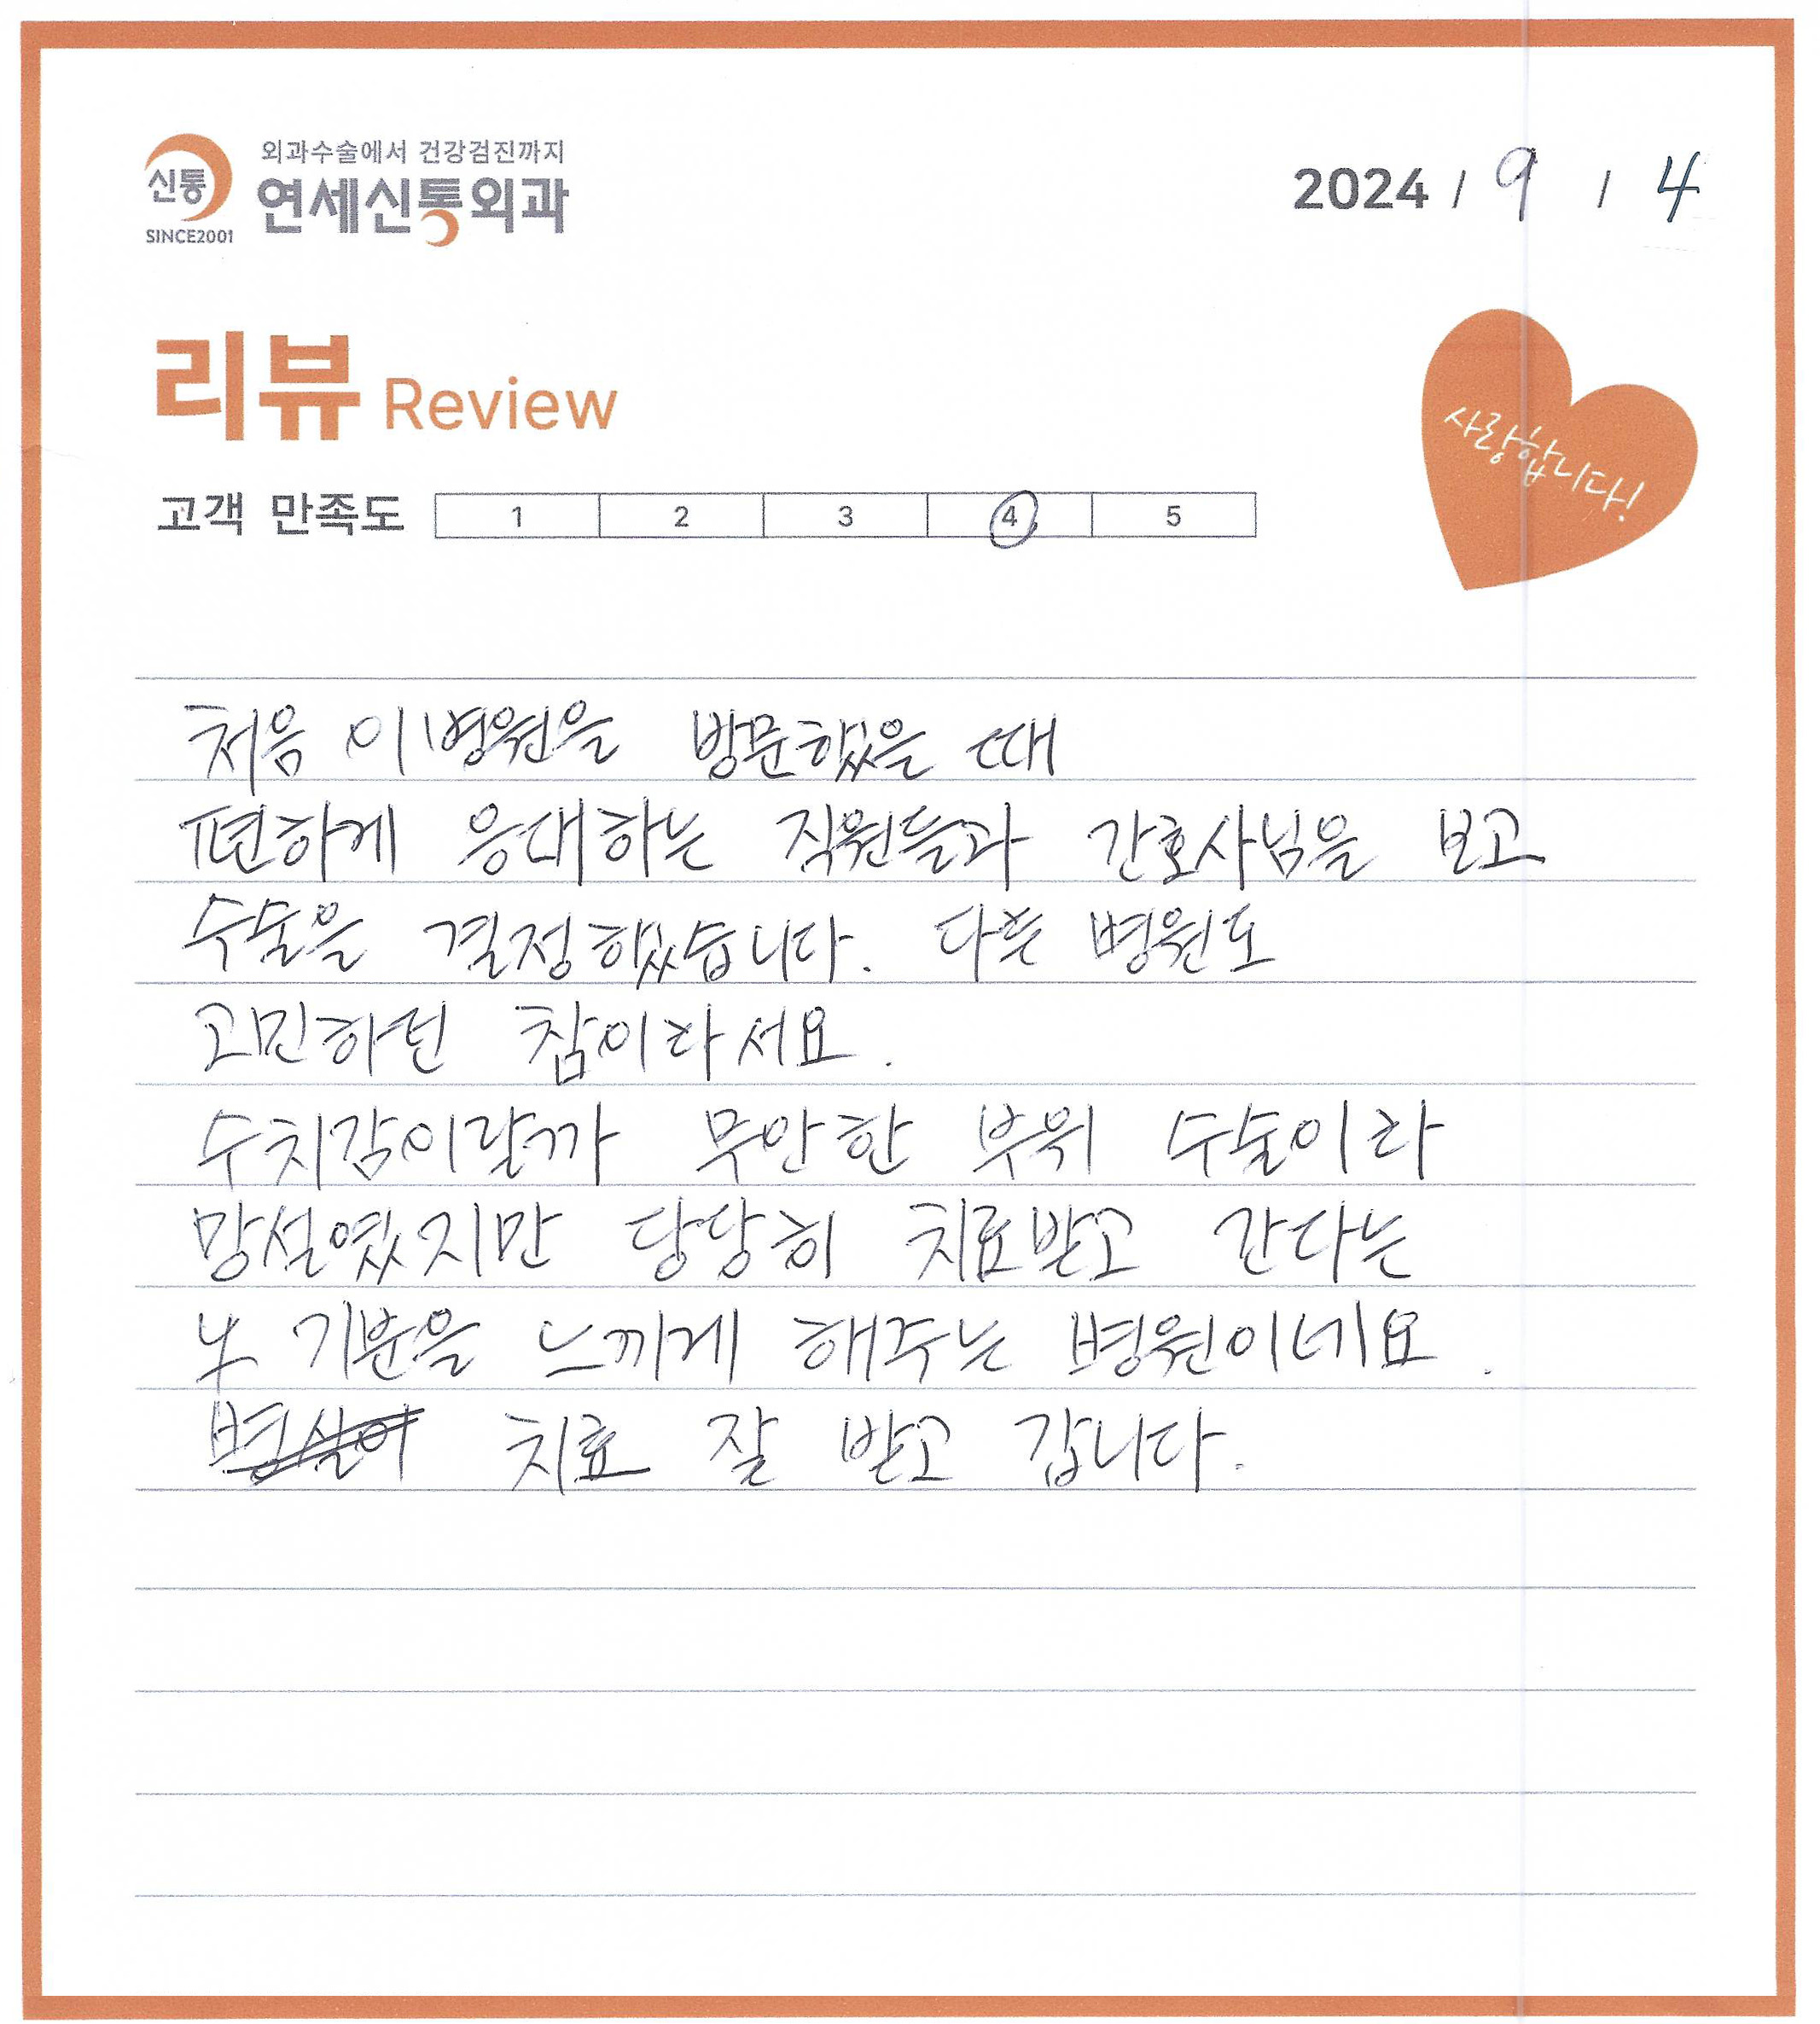 외과수술에서 건강검진까지
신통 연세신통외과
SINCE2001
2024 / 9 / 4
리뷰 Review
사랑합니다!
고객 만족도 1 2 3 4 5
처음 이 병원을 방문했을 때
편하게 응대하는 직원들과 간호사님을 보고
수술을 결정했습니다. 다른 병원도
고민하던 참이라서요.
수치감이랄까 무안한 부위 수술이라
망설였지만 당당히 치료받고 간다는
기분을 느끼게 해주는 병원이네요.
치료 잘 받고 갑니다.